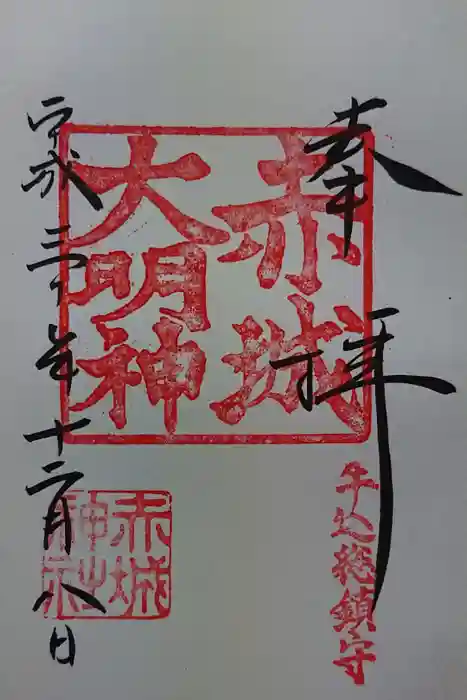 奉拝
赤城
大明神
牛込総鎮守
赤城
神社
平成三十年十二月八日